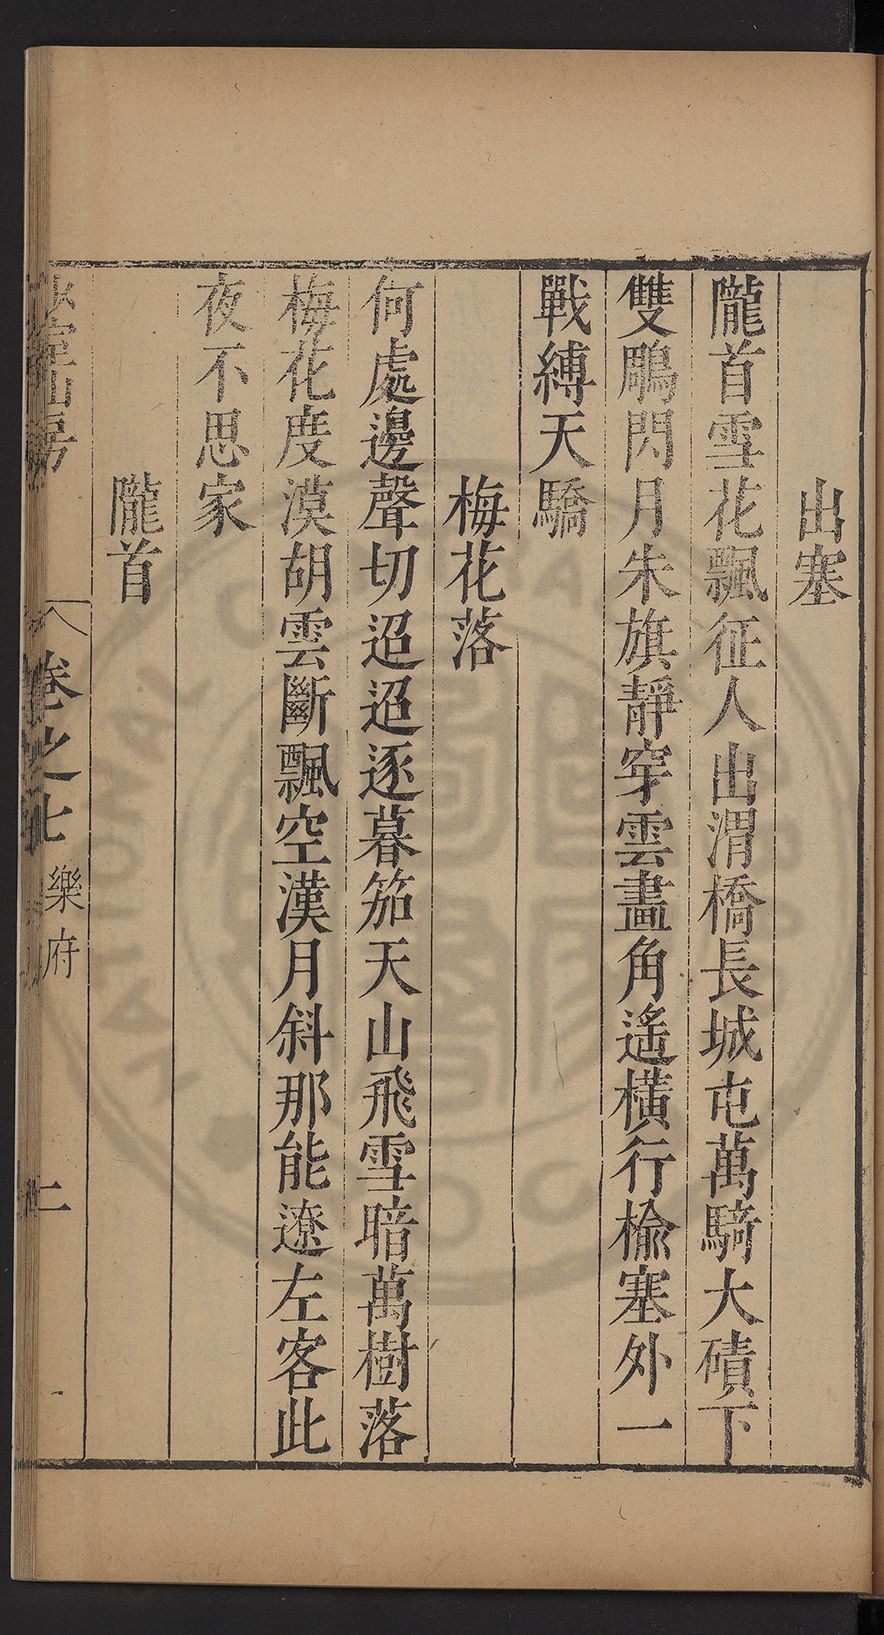 出塞
隴首雪花飄征人出渭橋長城屯萬騎大磧下
雙鵰閃月朱旗靜穿雲畫角遙橫行榆塞外一
戰縛天驕
梅花落
何處邊聲切迢迢逐暮笳天山飛雪暗萬樹落
梅花度漠胡雲斷飄空漢月斜那能遼左客此
夜不思家
隴首
山房
卷之七
樂府
二